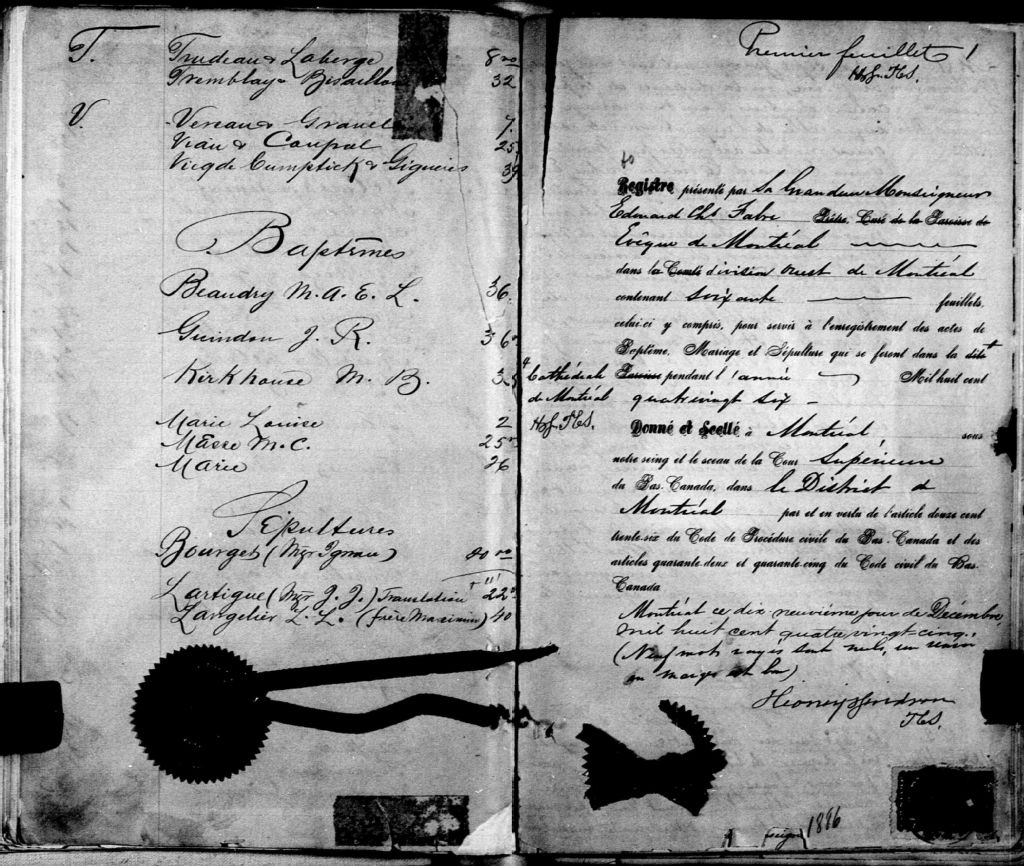 T. Trudeau & Laberge 8
Tremblay & Bisaillon 32
V. Verrau & Gravel 7.
Viau & Coupal 25
Vieg de Cumptick & Giguères 39
Baptêmes
Beaudry M. A. E. L. 36
Guindon J. R. 36
Kirkhouse M. B. 35
Marie Louise 2
Masse M. C. 25
Marie 26
Sépultures
Bourget (Mgr Ignace) 20
Lartigue (Mgr J. J.) Translation 22
Langelier L. L. (frère Maximin) 40
Premier feuillet 1
HyJ. TCS.
Registre présenté par Sa Grandeur Monseigneur
Edouard Chs Fabre Prêtre, Curé de la Paroisse de
Evêque de Montréal
dans la Comté division ouest de Montréal
contenant soixante feuillets,
celui-ci y compris, pour servir à l'enregistrement des actes de
Baptême, Mariage et Sépulture qui se feront dans la dite
Paroisse pendant l'année Mil huit cent
quatrevingt six
Cathédrale
de Montréal
HyJ. TCS.
Donné et Scellé à Montréal, sous
notre seing et le sceau de la Cour Supérieure
du Bas-Canada, dans le District de
Montréal par et en vertu de l'article douze cent
trente-six du Code de Procédure civile du Bas-Canada et des
articles quarante-deux et quarante-cinq du Code civil du Bas-
Canada
Montréal ce dix neuvième jour de Décembre
mil huit cent quatre vingt-cinq.
(Neuf mots rayés sont nuls, un renvoi
en marge est bon)
TCS.
1886